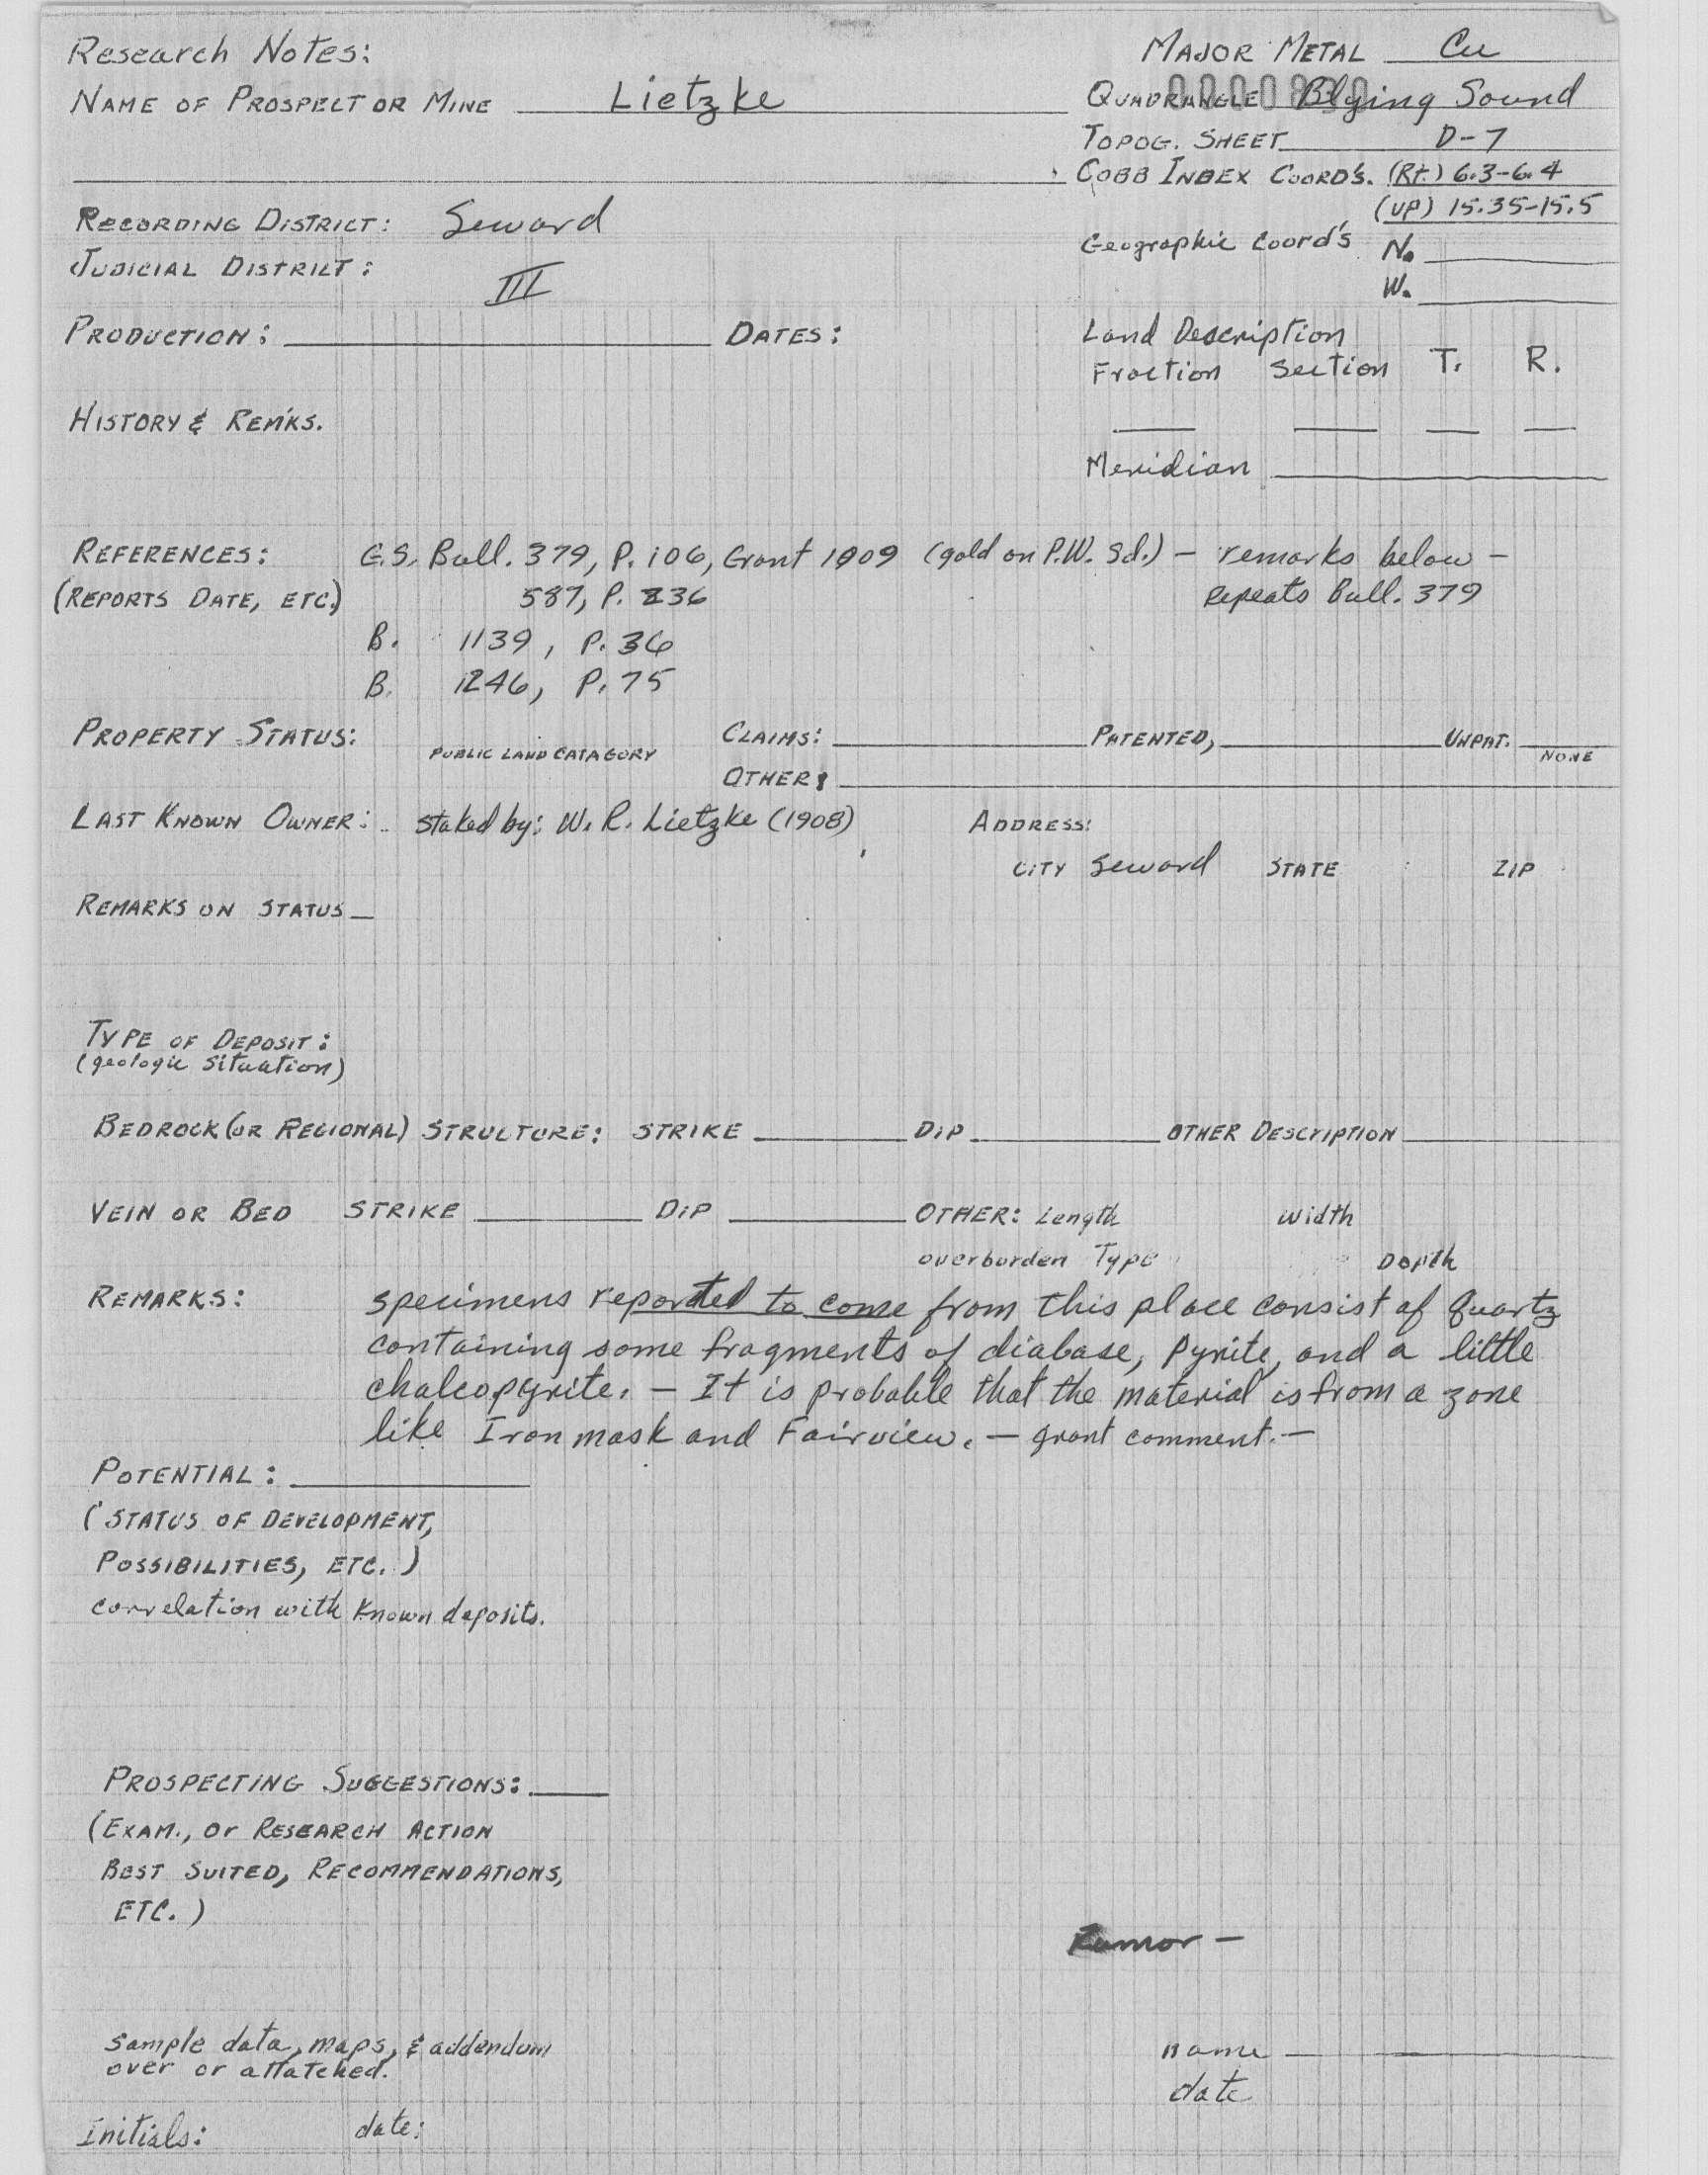 Research Notes:
MAJOR METAL Cu
NAME OF PROSPECT OR MINE Lietzke
QUADRANGLE Blying Sound
TOPOG. SHEET D-7
COBB INDEX COORD'S. (Rt.) 6.3-6.4
(UP) 15.35-15.5
RECORDING DISTRICT: Seward
Geographic Coord's N.
W.
JUDICIAL DISTRICT: III
PRODUCTION: DATES:
Land Description
Fraction Section T. R.
HISTORY & REM'KS.
Meridian
REFERENCES: G.S. Bull. 379, P. 106, Grant 1909 (gold on P.W. Sd.) - remarks below -
(REPORTS DATE, ETC.) 587, P. 236 Repeats Bull. 379
B. 1139, P. 36
B. 1246, P. 75
PROPERTY STATUS: PUBLIC LAND CATAGORY CLAIMS: PATENTED, UNPAT. NONE
OTHER:
LAST KNOWN OWNER: staked by: W. R. Lietzke (1908) ADDRESS:
CITY Seward STATE ZIP
REMARKS ON STATUS
TYPE OF DEPOSIT:
(geologic situation)
BEDROCK (OR REGIONAL) STRUCTURE: STRIKE DIP OTHER DESCRIPTION
VEIN OR BED STRIKE DIP OTHER: Length Width
overburden Type Depth
REMARKS: specimens reported to come from this place consist of quartz
containing some fragments of diabase, pyrite, and a little
chalcopyrite. - It is probable that the material is from a zone
like Iron mask and Fairview. - grant comment. -
POTENTIAL:
(STATUS OF DEVELOPMENT,
POSSIBILITIES, ETC.)
correlation with known deposits.
PROSPECTING SUGGESTIONS:
(EXAM., or RESEARCH ACTION
BEST SUITED, RECOMMENDATIONS,
ETC.)
Rumor -
sample data, maps, & addendum
over or attatched.
name
date
Initials: date: